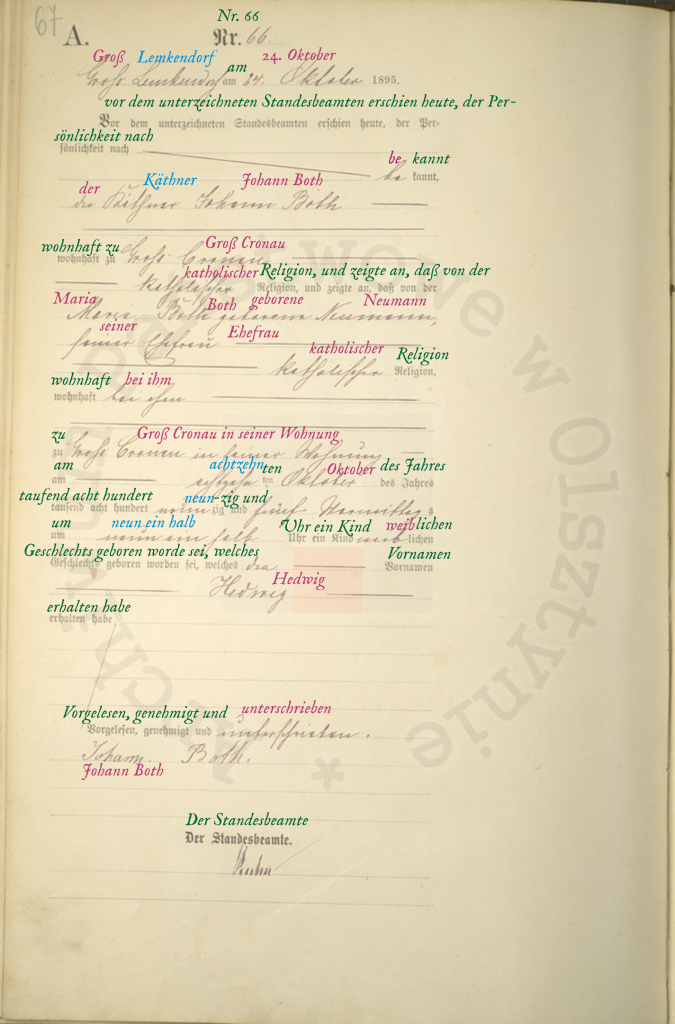 67
Nr. 66
A. Nr. 66.
Groß Lemkendorf am 24. Oktober
Groß Lemkendorf am 24. Oktober 1895.
vor dem unterzeichneten Standesbeamten erschien heute, der Per-
Vor dem unterzeichneten Standesbeamten erschien heute, der Per=
sönlichkeit nach
sönlichkeit nach
be kannt
be kannt,
der Käthner Johann Both
der Käthner Johann Both
wohnhaft zu Groß Cronau
wohnhaft zu Groß Cronau
katholischer Religion, und zeigte an, daß von der
katholischer Religion, und zeigte an, daß von der
Maria Both geborene Neumann
Maria Both geborene Neumann,
seiner Ehefrau
seiner Ehefrau
katholischer Religion
katholischer Religion,
wohnhaft bei ihm
wohnhaft bei ihm
zu Groß Cronau in seiner Wohnung
zu Groß Cronau in seiner Wohnung
am achtzehnten Oktober des Jahres
am achtzehn ten Oktober des Jahres
taufend acht hundert neun-zig und
tausend acht hundert neun zig und fünf Vormittag s
um neun ein halb Uhr ein Kind weiblichen
um neun ein halb Uhr ein Kind weiblichen
Geschlechts geboren worde sei, welches Vornamen
Geschlechts geboren worden sei, welches den Vornamen
Hedwig
Hedwig
erhalten habe
erhalten habe
Vorgelesen, genehmigt und unterschrieben
Vorgelesen, genehmigt und unterschrieben.
Johann Both.
Johann Both
Der Standesbeamte
Der Standesbeamte.